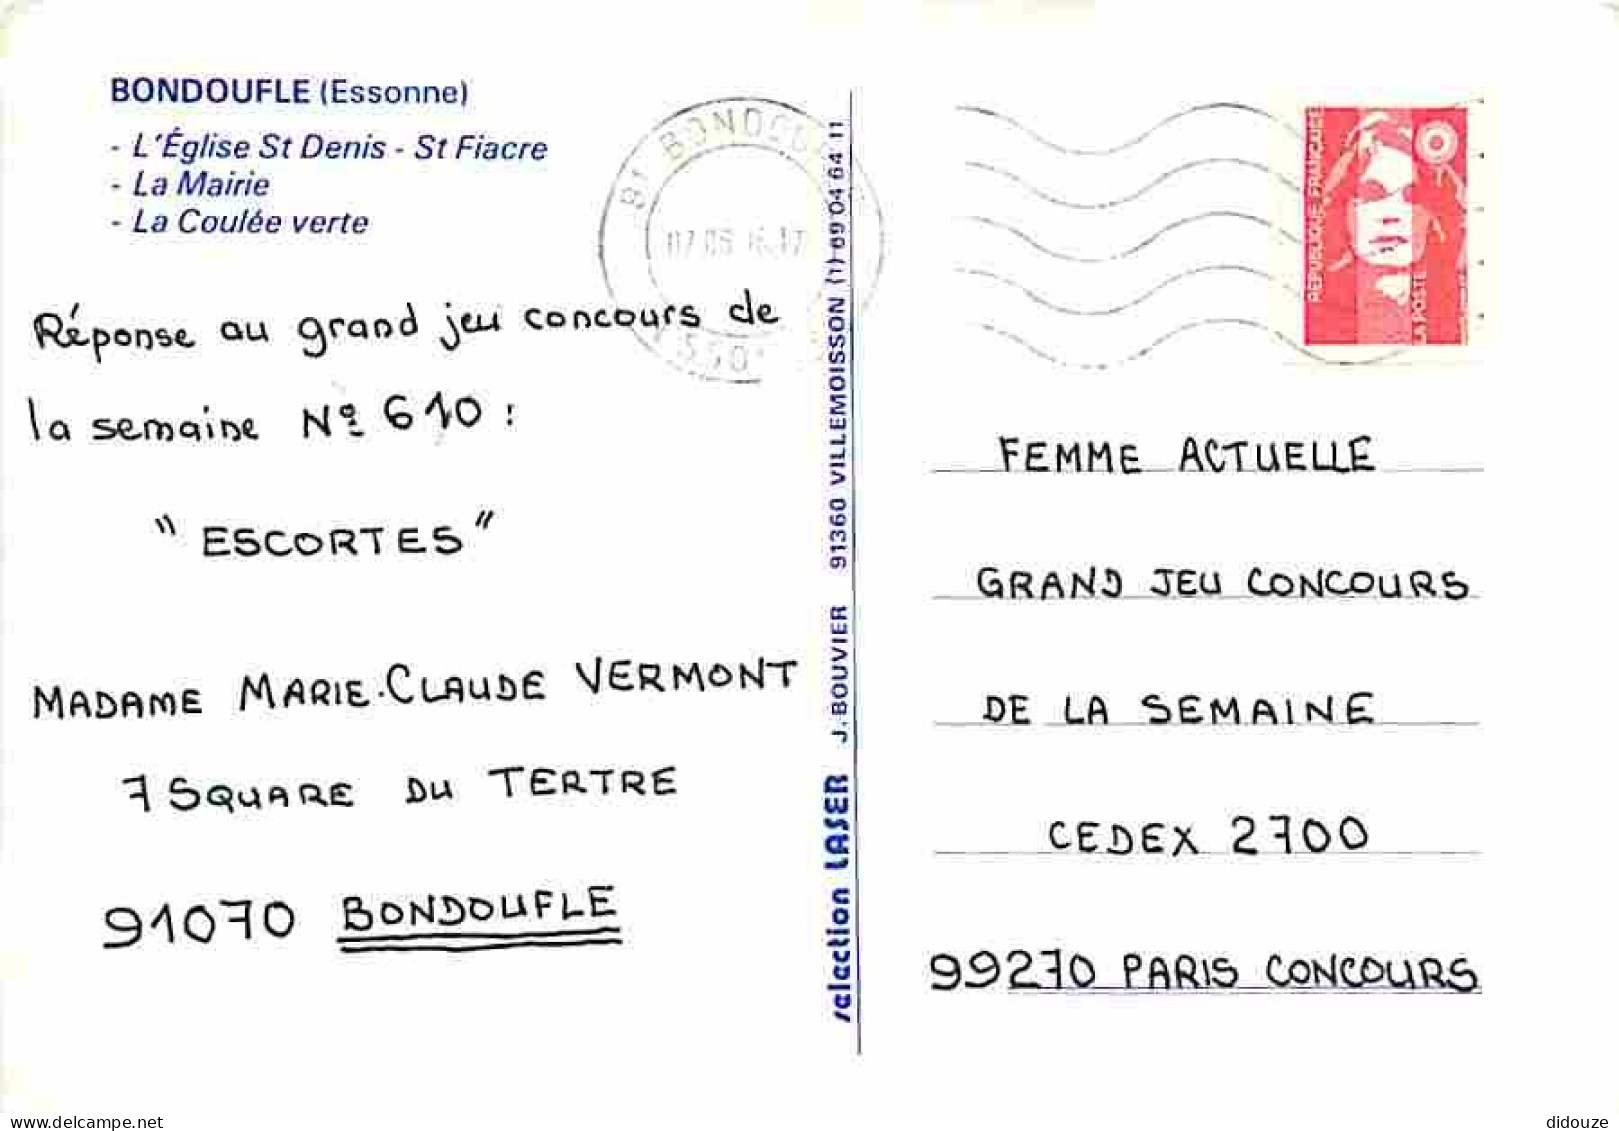 BONDOUFLE (Essonne)
- L'Église St Denis - St Fiacre
- La Mairie
- La Coulée verte
Réponse au grand jeu concours de
la semaine Nº 610 :
"ESCORTES"
MADAME MARIE-CLAUDE VERMONT
7 SQUARE DU TERTRE
91070 BONDOUFLE
91 BONDOU
sélection LASER J. BOUVIER 91360 VILLEMOISSON (1) 69 04 64 11
RÉPUBLIQUE FRANÇAISE
LA POSTE
FEMME ACTUELLE
GRAND JEU CONCOURS
DE LA SEMAINE
CEDEX 2700
99270 PARIS CONCOURS
delcampe.net
didouze